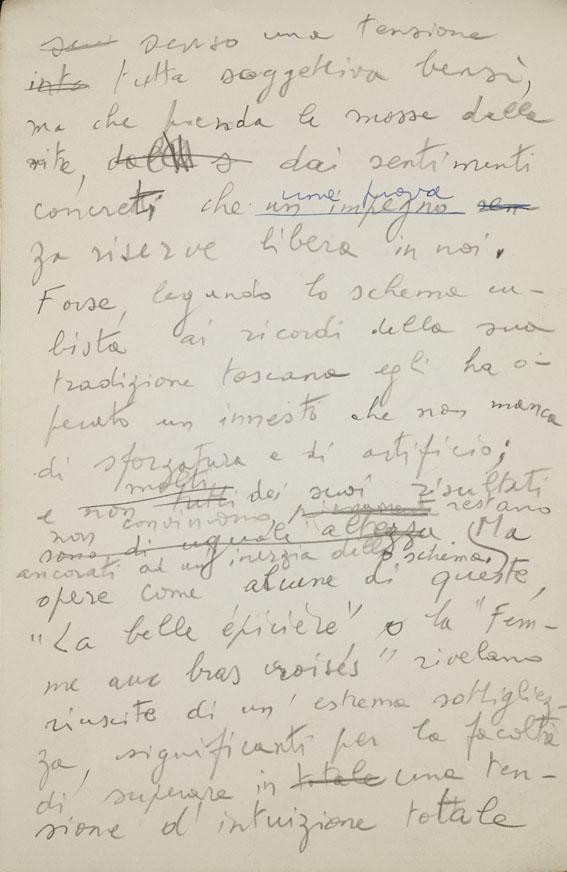 senso una tensione
tutta soggettiva bensì,
ma che prenda le mosse dalla
vita, dai sentimenti
concreti che una prova
un impegno sen-
za riserve libera in noi.
Forse, legando lo schema cu-
bista ai ricordi della sua
tradizione toscana egli ha o-
perato un innesto che non manca
di sforzatura e di artificio;
molti
e non tutti dei suoi risultati
non convincono, restano
sono di uguale altezza. Ma
ancorati ad un'inerzia dello schema.
opere come alcune di queste,
"La belle épicière", o la "Fem-
me aux bras croisés" rivelano
riuscite di un'estrema sottigliez-
za, significanti per la facoltà
di superare in totale una ten-
sione d'intuizione totale